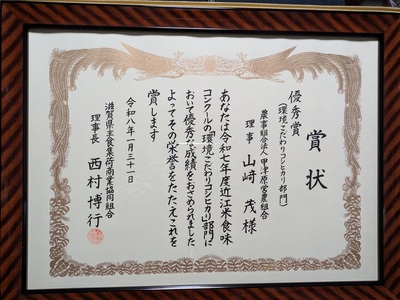 賞状
優秀賞
(環境こだわりコシヒカリ部門)
農事組合法人 甲津原営農組合
理事 山﨑 茂 様
あなたは令和七年度近江米食味
コンクールの「環境こだわりコシヒカリ」部門に
おいて優秀な成績をおさめられました
よってその栄誉をたたえこれを
賞します
令和八年一月三十一日
滋賀県主食集荷商業協同組合
理事長 西村 博行